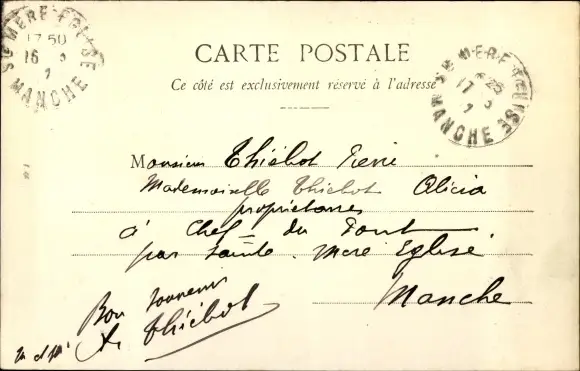 Ste MERE EGLISE
17 50
16
MANCHE
Ste MERE EGLISE
17
MANCHE
CARTE POSTALE
Ce côté est exclusivement réservé à l'adresse
Monsieur Thiébot Pierre
Mademoiselle Thiébot Alicia
propriétaires
à Chef du Pont
par Sainte Mère Eglise
Manche
Bon souvenir
A. Thiébot